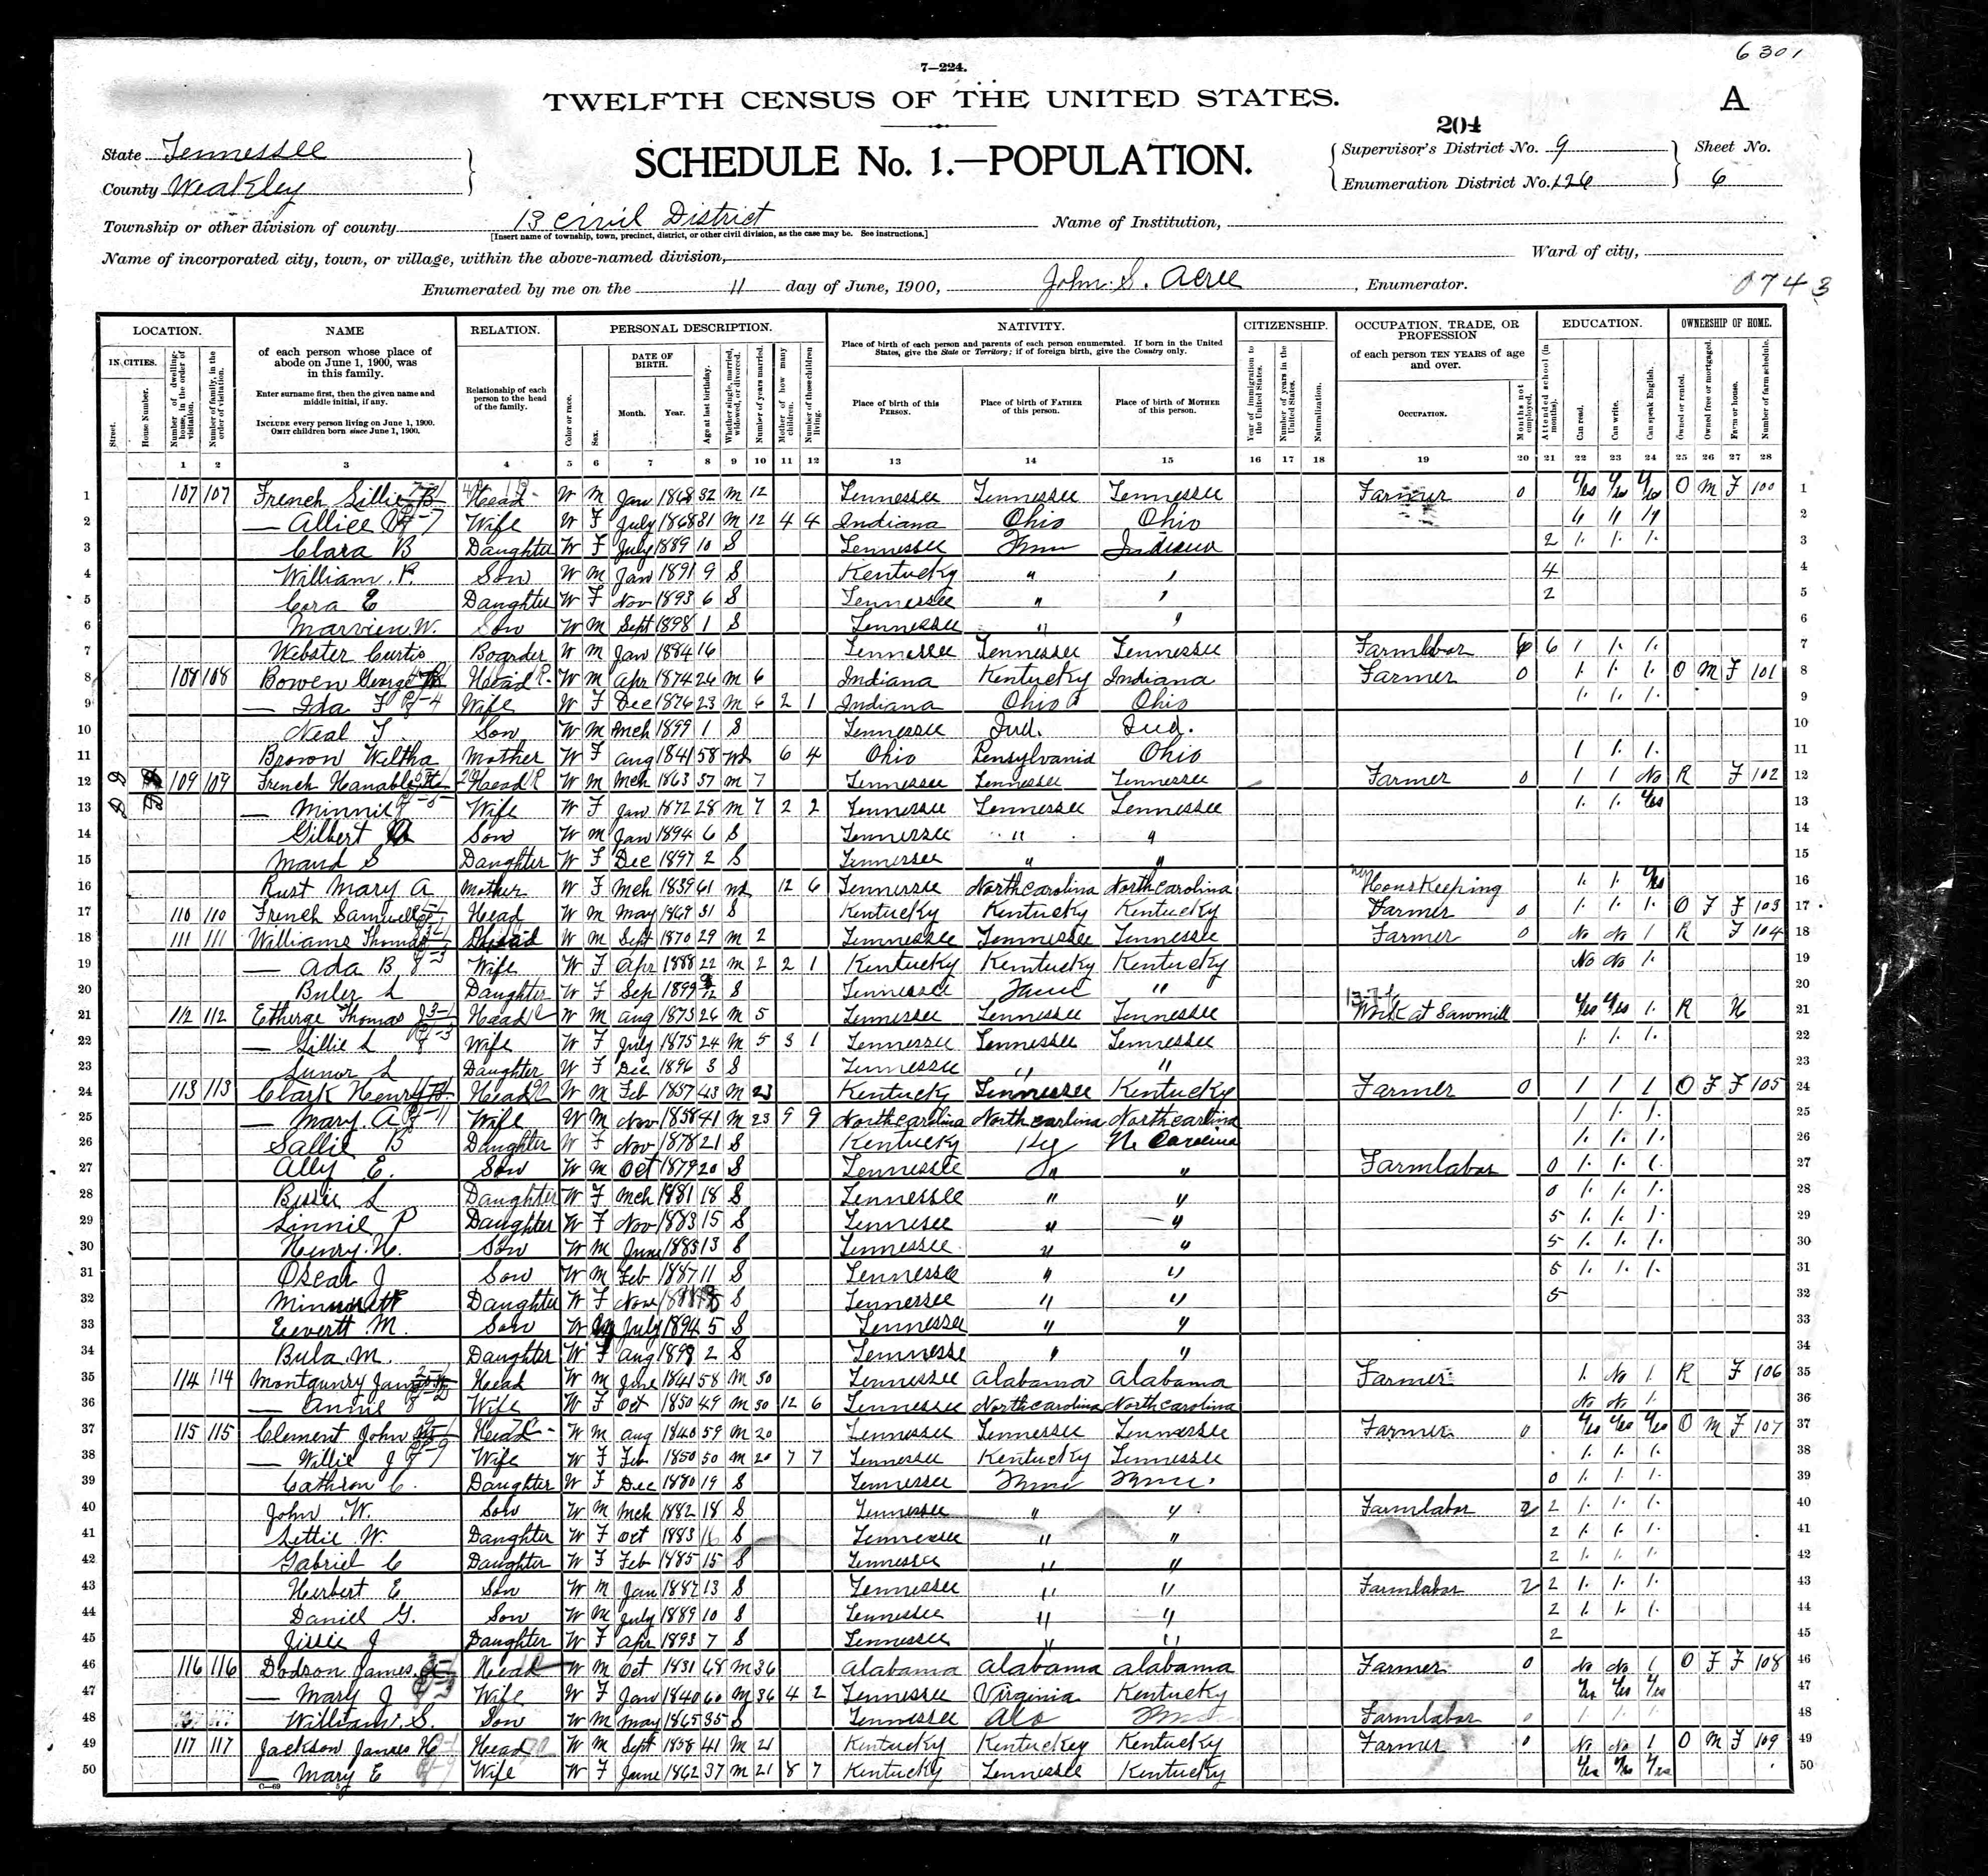 6301
7—224.
TWELFTH CENSUS OF THE UNITED STATES.
A
204
State Tennessee
SCHEDULE No. 1.—POPULATION.
Supervisor's District No. 9
Sheet No.
County Weakley
Enumeration District No. 126
6
Township or other division of county 13 Civil District
Name of Institution,
[Insert name of township, town, precinct, district, or other civil division, as the case may be. See instructions.]
Name of incorporated city, town, or village, within the above-named division,
Ward of city,
Enumerated by me on the 11 day of June, 1900, John. S. Acree, Enumerator.
0743
LOCATION. NAME RELATION. PERSONAL DESCRIPTION. NATIVITY. CITIZENSHIP. OCCUPATION, TRADE, OR PROFESSION EDUCATION. OWNERSHIP OF HOME.
IN CITIES.
Street.
House Number.
Number of dwelling-house, in the order of visitation.
Number of family, in the order of visitation.
of each person whose place of abode on June 1, 1900, was in this family.
Enter surname first, then the given name and middle initial, if any.
INCLUDE every person living on June 1, 1900.
OMIT children born since June 1, 1900.
Relationship of each person to the head of the family.
Color or race.
Sex.
DATE OF BIRTH.
Month. Year.
Age at last birthday.
Whether single, married, widowed, or divorced.
Number of years married.
Mother of how many children.
Number of these children living.
Place of birth of each person and parents of each person enumerated. If born in the United States, give the State or Territory; if of foreign birth, give the Country only.
Place of birth of this PERSON.
Place of birth of FATHER of this person.
Place of birth of MOTHER of this person.
Year of immigration to the United States.
Number of years in the United States.
Naturalization.
of each person TEN YEARS of age and over.
OCCUPATION.
Months not employed.
Attended school (in months).
Can read.
Can write.
Can speak English.
Owned or rented.
Owned free or mortgaged.
Farm or house.
Number of farm schedule.
1 2 3 4 5 6 7 8 9 10 11 12 13 14 15 16 17 18 19 20 21 22 23 24 25 26 27 28
1 107 107 French Head W M Jan 1868 32 M 12 Tennessee Tennessee Tennessee Farmer 0 Yes Yes Yes O M F 100 1
2 — Allice Wife W F July 1868 31 M 12 4 4 Indiana Ohio Ohio " " " 2
3 Clara B Daughter W F July 1889 10 S Tennessee Tenn Indiana 2 1. 1. 1. 3
4 William. P. Son W M Jan 1891 9 S Kentucky " " 4 4
5 Cora E Daughter W F Nov 1893 6 S Tennessee " " 2 5
6 Marvien. W. Son W M Sept 1898 1 S Tennessee " " 6
7 Webster Curtis Boarder W M Jan 1884 16 Tennessee Tennessee Tennessee Farmlabor 6 6 1 1. 1. 7
8 108 108 Bowen George Head W M Apr 1874 26 M 6 Indiana Kentucky Indiana Farmer 0 1. 1. 1. O M F 101 8
9 — Ida F Wife W F Dec 1876 23 M 6 2 1 Indiana Ohio Ohio 1. 1. 1. 9
10 Neal T. Son W M Mch 1899 1 S Tennessee Ind. Ind. 10
11 Brown Weltha Mother W F Aug 1841 58 Wd 6 4 Ohio Pensylvania Ohio 1 1. 1. 11
12 109 109 French Hanable Head W M Mch 1863 37 M 7 Tennessee Tennessee Tennessee Farmer 0 1 1 No R F 102 12
13 — Minnie Wife W F Jan 1872 28 M 7 2 2 Tennessee Tennessee Tennessee 1. 1. Yes 13
14 Gilbert Son W M Jan 1894 6 S Tennessee " " 14
15 Maud S Daughter W F Dec 1897 2 S Tennessee " " 15
16 Rust Mary A Mother W F Mch 1839 61 Wd 12 6 Tennessee North Carolina North Carolina HousKeeping 1. 1. Yes 16
17 110 110 French Samuell Head W M May 1869 31 S Kentucky Kentucky Kentucky Farmer 0 1. 1. 1. O F F 103 17
18 111 111 Williams Thomas Head W M Sept 1870 29 M 2 Tennessee Tennessee Tennessee Farmer 0 No No 1 R F 104 18
19 — Ada B Wife W F Apr 1888 22 M 2 2 1 Kentucky Kentucky Kentucky No No 1. 19
20 Buler L Daughter W F Sep 1899 9/12 S Tennessee " 20
21 112 112 Etherge Thomas J Head W M Aug 1873 26 M 5 Tennessee Tennessee Tennessee Work at Sawmill Yes Yes 1. R H 21
22 — Lillie L Wife W F July 1875 24 M 5 3 1 Tennessee Tennessee Tennessee 1. 1. 1. 22
23 Lunor L Daughter W F Dec 1896 3 S Tennessee " " 23
24 113 113 Clark Henry Head W M Feb 1857 43 M 23 Kentucky Tennessee Kentucky Farmer 0 1 1 1 O F F 105 24
25 — Mary. A Wife W M Nov 1858 41 M 23 9 9 North Carolina North Carolina North Carolina 1 1. 1. 25
26 Sallie B Daughter W F Nov 1878 21 S Kentucky Ky N. Carolina 1. 1. 1. 26
27 Ally E. Son W M Oct 1879 20 S Tennessee " " Farmlabor 0 1. 1. 1. 27
28 L Daughter W F Mch 1881 18 S Tennessee " " 0 1. 1. 1. 28
29 Linnie P Daughter W F Nov 1883 15 S Tennessee " " 5 1. 1. 1. 29
30 Henry. H. Son W M June 1885 13 S Tennessee " " 5 1. 1. 1. 30
31 Oscar J Son W M Feb 1887 11 S Tennessee " " 5 1. 1. 1. 31
32 Daughter W F Nov S Tennessee " " 5 32
33 Eevertt. M. Son W M July 1894 5 S Tennessee " " 33
34 Bula. M. Daughter W F Aug 1898 2 S Tennesse " " 34
35 114 114 Montgunry James Head W M June 1841 58 M 30 Tennessee Alabama Alabama Farmer 1. No 1 R F 106 35
36 — Annie Wife W F Oct 1850 49 M 30 12 6 Tennessee North Carolina North Carolina No No 1. 36
37 115 115 Clement John Head W M Aug 1840 59 M 20 Tennessee Tennessee Tennessee Farmer 0 Yes Yes Yes O M F 107 37
38 — Willie J Wife W F Feb 1850 50 M 20 7 7 Tennessee Kentucky Tennessee 1. 1. 1. 38
39 Cathron C. Daughter W F Dec 1880 19 S Tennessee Tenn Tenn 0 1. 1. 1. 39
40 John W. Son W M Mch 1882 18 S Tennessee " " Farmlabor 2 2 1. 1. 1. 40
41 Lettie W. Daughter W F Oct 1883 16 S Tennessee " " 2 1. 1. 1. 41
42 Gabriel C Daughter W F Feb 1885 15 S Tennessee " " 2 1. 1. 1. 42
43 Herbert E. Son W M Jan 1887 13 S Tennessee " " Farmlabor 2 2 1. 1. 1. 43
44 Daniel G. Son W M July 1889 10 S Tennessee " " 2 1. 1. 1. 44
45 Jissie J Daughter W F Apr 1893 7 S Tennessee " " 2 45
46 116 116 Dodson James Head W M Oct 1831 68 M 36 Alabama Alabama Alabama Farmer 0 No No 1 O F F 108 46
47 — Mary J Wife W F Jan 1840 60 M 36 4 2 Tennessee Virginia Kentucky Yes Yes Yes 47
48 William. S. Son W M May 1865 35 S Tennessee Ala Farmlabor 0 1 1 1 48
49 117 117 Jackson James H Head W M Sept 1858 41 M 21 Kentucky Kentucky Kentucky Farmer 0 No No 1 O M F 109 49
50 — Mary E Wife W F June 1862 37 M 21 8 7 Kentucky Tennessee Kentucky Yes Yes Yes 50
C—69